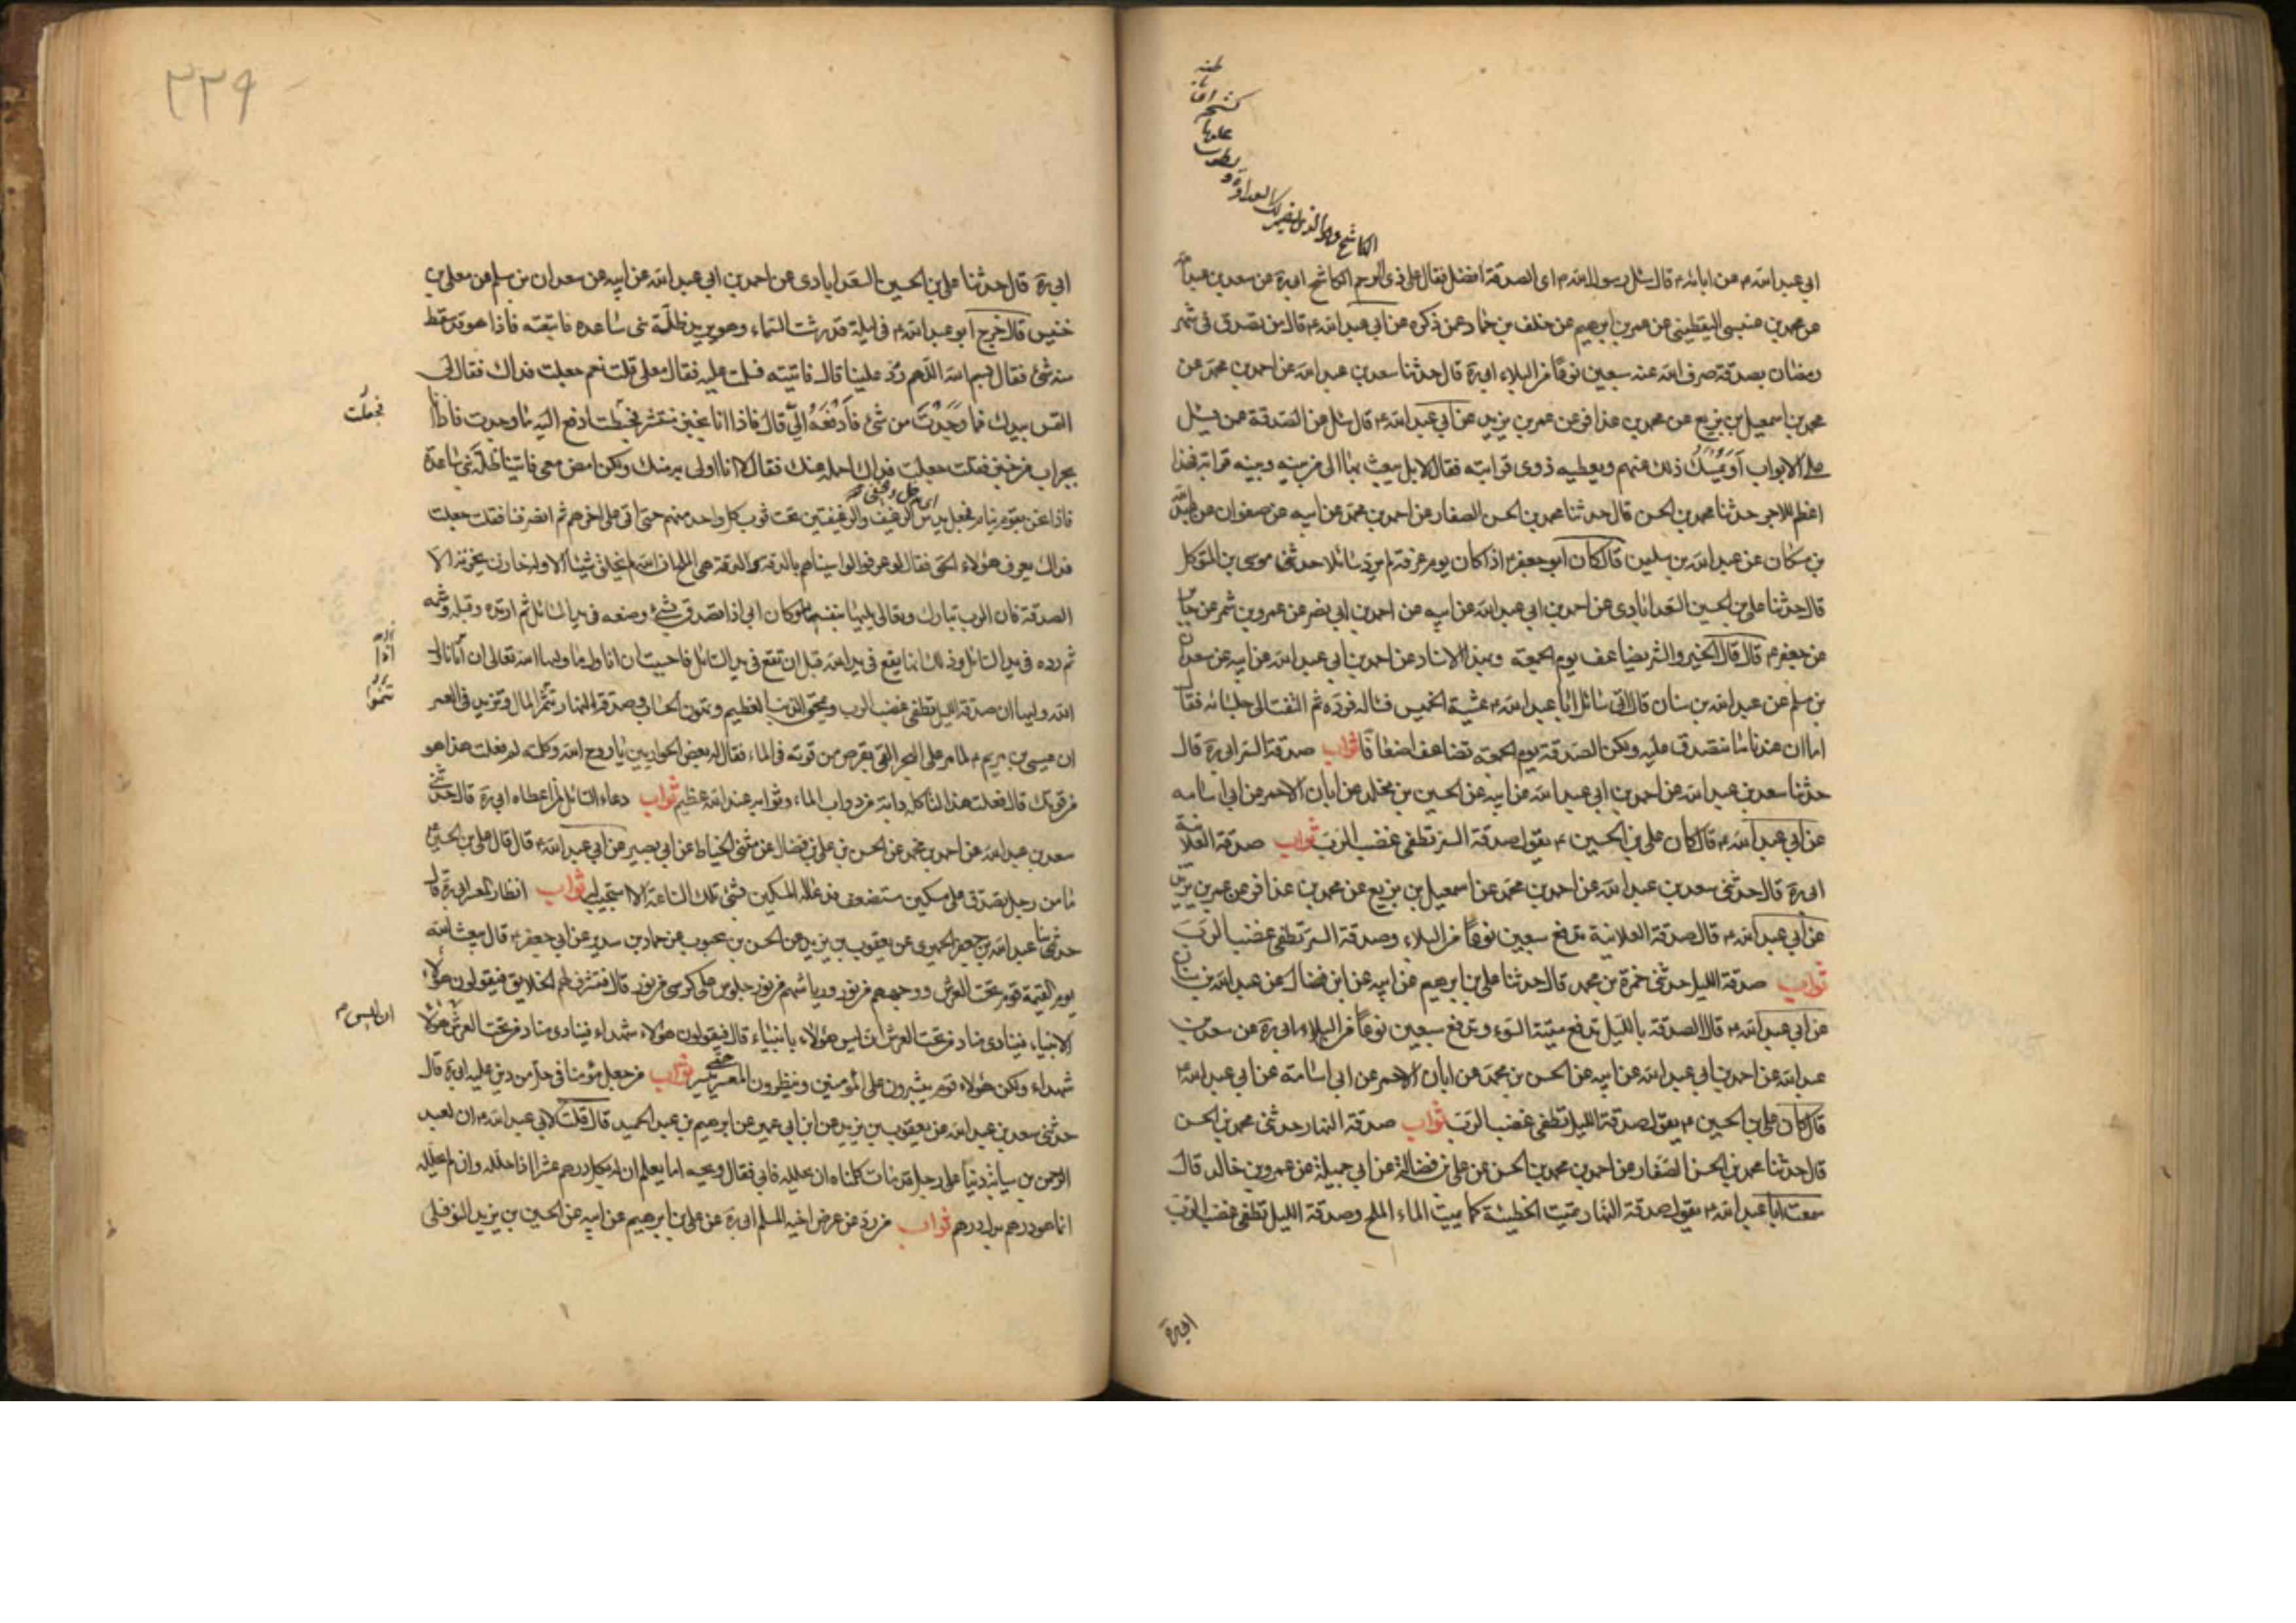 الكاشح هو الذي يضمر لك العداوة و يطوى عليها كشحه اى باطنه
ابي عبد الله ع من ابائه ع قال سئل رسول الله ص اى الصدقة افضل فقال على ذى الرحم الكاشح ابى ره عن سعد بن عبد الله
عن محمد بن عيسى اليقطيني عن عمر بن ابرهيم عن خلف بن حماد عمن ذكره عن ابي عبد الله ع قال من تصدق فى شهر
رمضان بصدقة صرف الله عنه سبعين نوعًا من البلاء ابى ره قال حدثنا سعد بن عبد الله عن احمد بن محمد عن
محمد بن اسمعيل بن بزيع عن محمد بن عذافر عن عمر بن يزيد عن ابي عبد الله ع قال سئل عن الصدقة عمن يسئل
على الابواب اَو يُمْسِكُ ذلك عنهم ويعطيه ذوى قرابته فقال لا بل يبعث بها الى من بينه وبينه قرابة فهذا
اعظم للاجر حدثنا محمد بن الحسن قال حدثنا محمد بن الحسن الصفار عن احمد بن محمد عن ابيه عن صفوان عن عبد الله
بن مسكان عن عبد الله بن سليمن قال كان ابو جعفر ع اذا كان يوم عرفة لم يرد سائلا حدثنى موسى بن المتوكل
قال حدثنا على بن الحسين السعدابادى عن احمد بن ابى عبد الله عن ابيه عن احمد بن ابى نضر عن عمرو بن شمر عن جابر
عن جعفر ع قال قال الخير والشر يضاعف يوم الجمعة وبهذا الاسناد عن احمد بن ابى عبد الله عن ابيه عن سعدان
بن مسلم عن عبد الله بن سنان قال اتى سائل ابا عبد الله ع عشية الخميس فسأله فرده ثم التفت الى جلسائه فقال
اما ان عندنا ما نتصدق عليه ولكن الصدقة يوم الجمعة تضاعف اضعافًا ثواب صدقة السر ابى ره قال
حدثنا سعد بن عبد الله عن احمد بن ابى عبد الله عن ابيه عن الحسين بن مخلد عن ابان الاحمر عن ابى اسامه
عن ابي عبد الله ع قال كان على بن الحسين ع يقول صدقة السر تطفى غضب الرب ثواب صدقة العلانية
ابى ره قال حدثنى سعد بن عبد الله عن احمد بن محمد عن اسمعيل بن بزيع عن محمد بن عذافر عن عمر بن يزيد
عن ابي عبد الله ع قال صدقة العلانية تدفع سبعين نوعًا من البلاء وصدقة السر تطفى غضب الرب
ثواب صدقة الليل حدثنى حمزة بن محمد قال حدثنا على بن ابرهيم عن ابيه عن ابن فضال عن عبد الله بن سنان
عن ابي عبد الله ع قال الصدقة بالليل تدفع ميتة السوء وتدفع سبعين نوعًا من البلاء ابى ره عن سعد بن
عبد الله عن احمد بن ابي عبد الله عن ابيه عن الحسن بن محمد عن ابان الاحمر عن ابي اسامة عن ابي عبد الله ع
قال كان على بن الحسين ع يقول صدقة الليل تطفى غضب الرب ثواب صدقة النهار حدثنى محمد بن الحسن
قال حدثنا محمد بن الحسن الصفار عن احمد بن محمد بن الحسن عن على بن فضالة عن ابي جميلة عن عمرو بن خالد قال
سمعت ابا عبد الله ع يقول صدقة النهار تميت الخطيئة كما يميث الماء الملح وصدقة الليل تطفى غضب الرب
ابى ره
٢٢٩
ابى ره قال حدثنا على بن الحسين السعدابادى عن احمد بن ابى عبد الله عن ابيه عن سعدان بن مسلم عن معلى بن
خنيس قال خرج ابو عبد الله ع فى ليلة قد رشت السماء وهو يريد ظلّة بنى ساعدة فاتبعته فاذا هو قد سقط
منه شئ فقال بسم الله اللهم رُدّ علينا قال فاتيته فسلمت عليه فقال معلى قلت نعم جعلت فداك فقال لى
التمس بيدك فما وجَدْتَ من شئ فَادْفَعْهُ اِلَىّ قال فاذا انا بخبز منتشر فجعلت ادفع اليه ما وجدت فاذا انا
فجعلت
بجراب من خبز فقلت جعلت فداك احمله عنك فقال لا انا اولى به منك ولكن امض معى فاتينا ظلّة بنى ساعدة
فاذا نحن بقوم نيام فجعل يدس الرغيف والرغيفين تحت ثوب كل واحد منهم حتى اتى على اخرهم ثم انصرفنا فقلت جعلت
فداك يعرف هؤلاء الحق فقال لو عرفوا لواسيناهم بالدقة والدقة هى الملح ان الله لم يخلق شيئا الا وله خازن يخزنه الا
الصدقة فان الرب تبارك وتعالى يليها بنفسه وكان ابى اذا تصدق بشئ وضعه فى يد السائل ثم ارتده وقبله وشمه
ثم رده فى يد السائل وذلك انها يقع فى يد الله قبل ان تقع فى يد السائل فاحببت ان اناول ما ولها الله تعالى ان اناناله
الله وليها ان صدقة الليل تطفى غضب الرب وتمحق الذنب العظيم وتهون الحساب وصدقة النهار تثمر المال وتزيد فى العمر
ان عيسى بن مريم ع لما مر على البحر القى بقرص من قوته فى الماء فقال له بعض الحواريين يا روح الله وكلمته لم فعلت هذا هو
من قوتك قال فعلت هذا لتاكله دابة من دواب الماء وثوابه عند الله عظيم ثواب دعاء السائل لمن اعطاه ابى ره قال حدثنى
سعد بن عبد الله عن احمد بن محمد عن الحسن بن على بن فضال عن مثنى الحناط عن ابى بصير عن ابي عبد الله ع قال قال على بن الحسين ع
ما من رجل تصدق على مسكين مستضعف فدعا له المسكين بشئ تلك الساعة الا استجيب له ثواب انظار المعسر ابى ره قال
حدثنا عبد الله بن جعفر الحميرى عن يعقوب بن يزيد عن الحسن بن محبوب عن حماد بن سدير عن ابى جعفر ع قال يبعث الله
يوم القيمة قوم تحت العرش ووجوههم من نور ورياشهم من نور جلوس على كراسى من نور قال فتشرف لهم الخلايق فيقولون هؤلاء
الانبياء فينادى مناد من تحت العرش ان ليس هؤلاء بانبياء قال فيقولون هؤلاء شهداء فينادى مناد من تحت العرش هؤلاء
ان ليس
شهداء ولكن هؤلاء قوم ييسرون على المؤمنين وينظرون المعسر حتى ييسر ثواب من جعل مؤمنا فى حل من دين عليه ابى ره قال
حدثنى سعد بن عبد الله عن يعقوب بن يزيد عن ابن ابى عمير عن ابرهيم بن عبد الحميد قال قلت لابى عبد الله ع ان لعبد
الرحمن بن سيابة دينا على رجل قد مات كلمناه ان يحلله فابى فقال ويحه اما يعلم ان له بكل درهم عشرا اذا حلله وان لم يحلله
انما هو درهم بدل درهم ثواب من رد عن عرض اخيه المسلم ابى ره عن على بن ابرهيم عن ابيه عن الحسين بن يزيد النوفلى